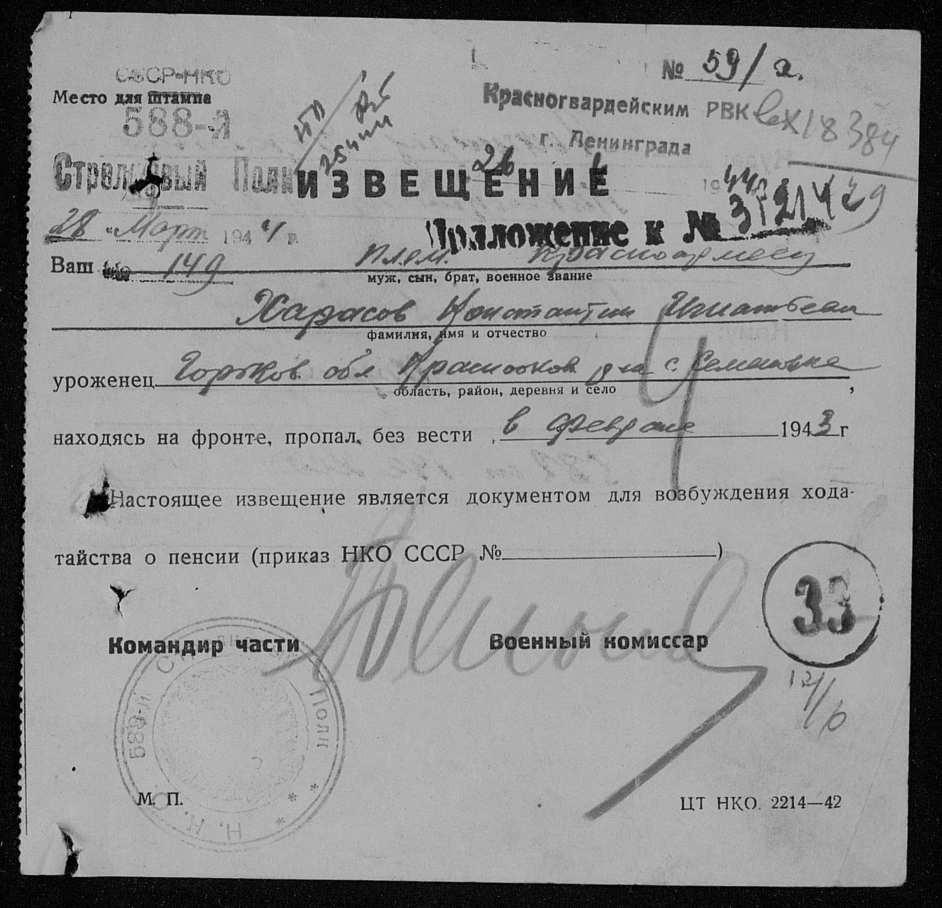 № 59/а.
СССР-НКО
Место для штампа
588-й
Стрелковый Полк
Красногвардейским РВК
г. Ленинграда
вх 18384
26 1944
ИЗВЕЩЕНИЕ
28 Март 1944 г.
Приложение к №
Ваш 149 плем. красноармеец
муж, сын, брат, военное звание
Харасов Константин Игнатьевич
фамилия, имя и отчество
уроженец Горьков обл с. Семеновка,
область, район, деревня и село
находясь на фронте, пропал без вести в феврале 1943 г
Настоящее извещение является документом для возбуждения хода-
тайства о пенсии (приказ НКО СССР № )
33
Командир части Военный комиссар
12/
588-й Полк * * Н. К. О.
М. П. ЦТ НКО. 2214—42